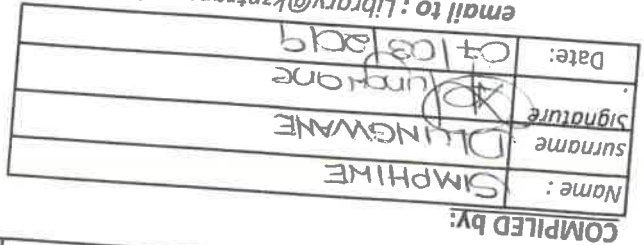 COMPILED by:
Name : SIMPHIWE
surname DLUNGWANE
Signature
Date: 07/03/2019
email to : Library@